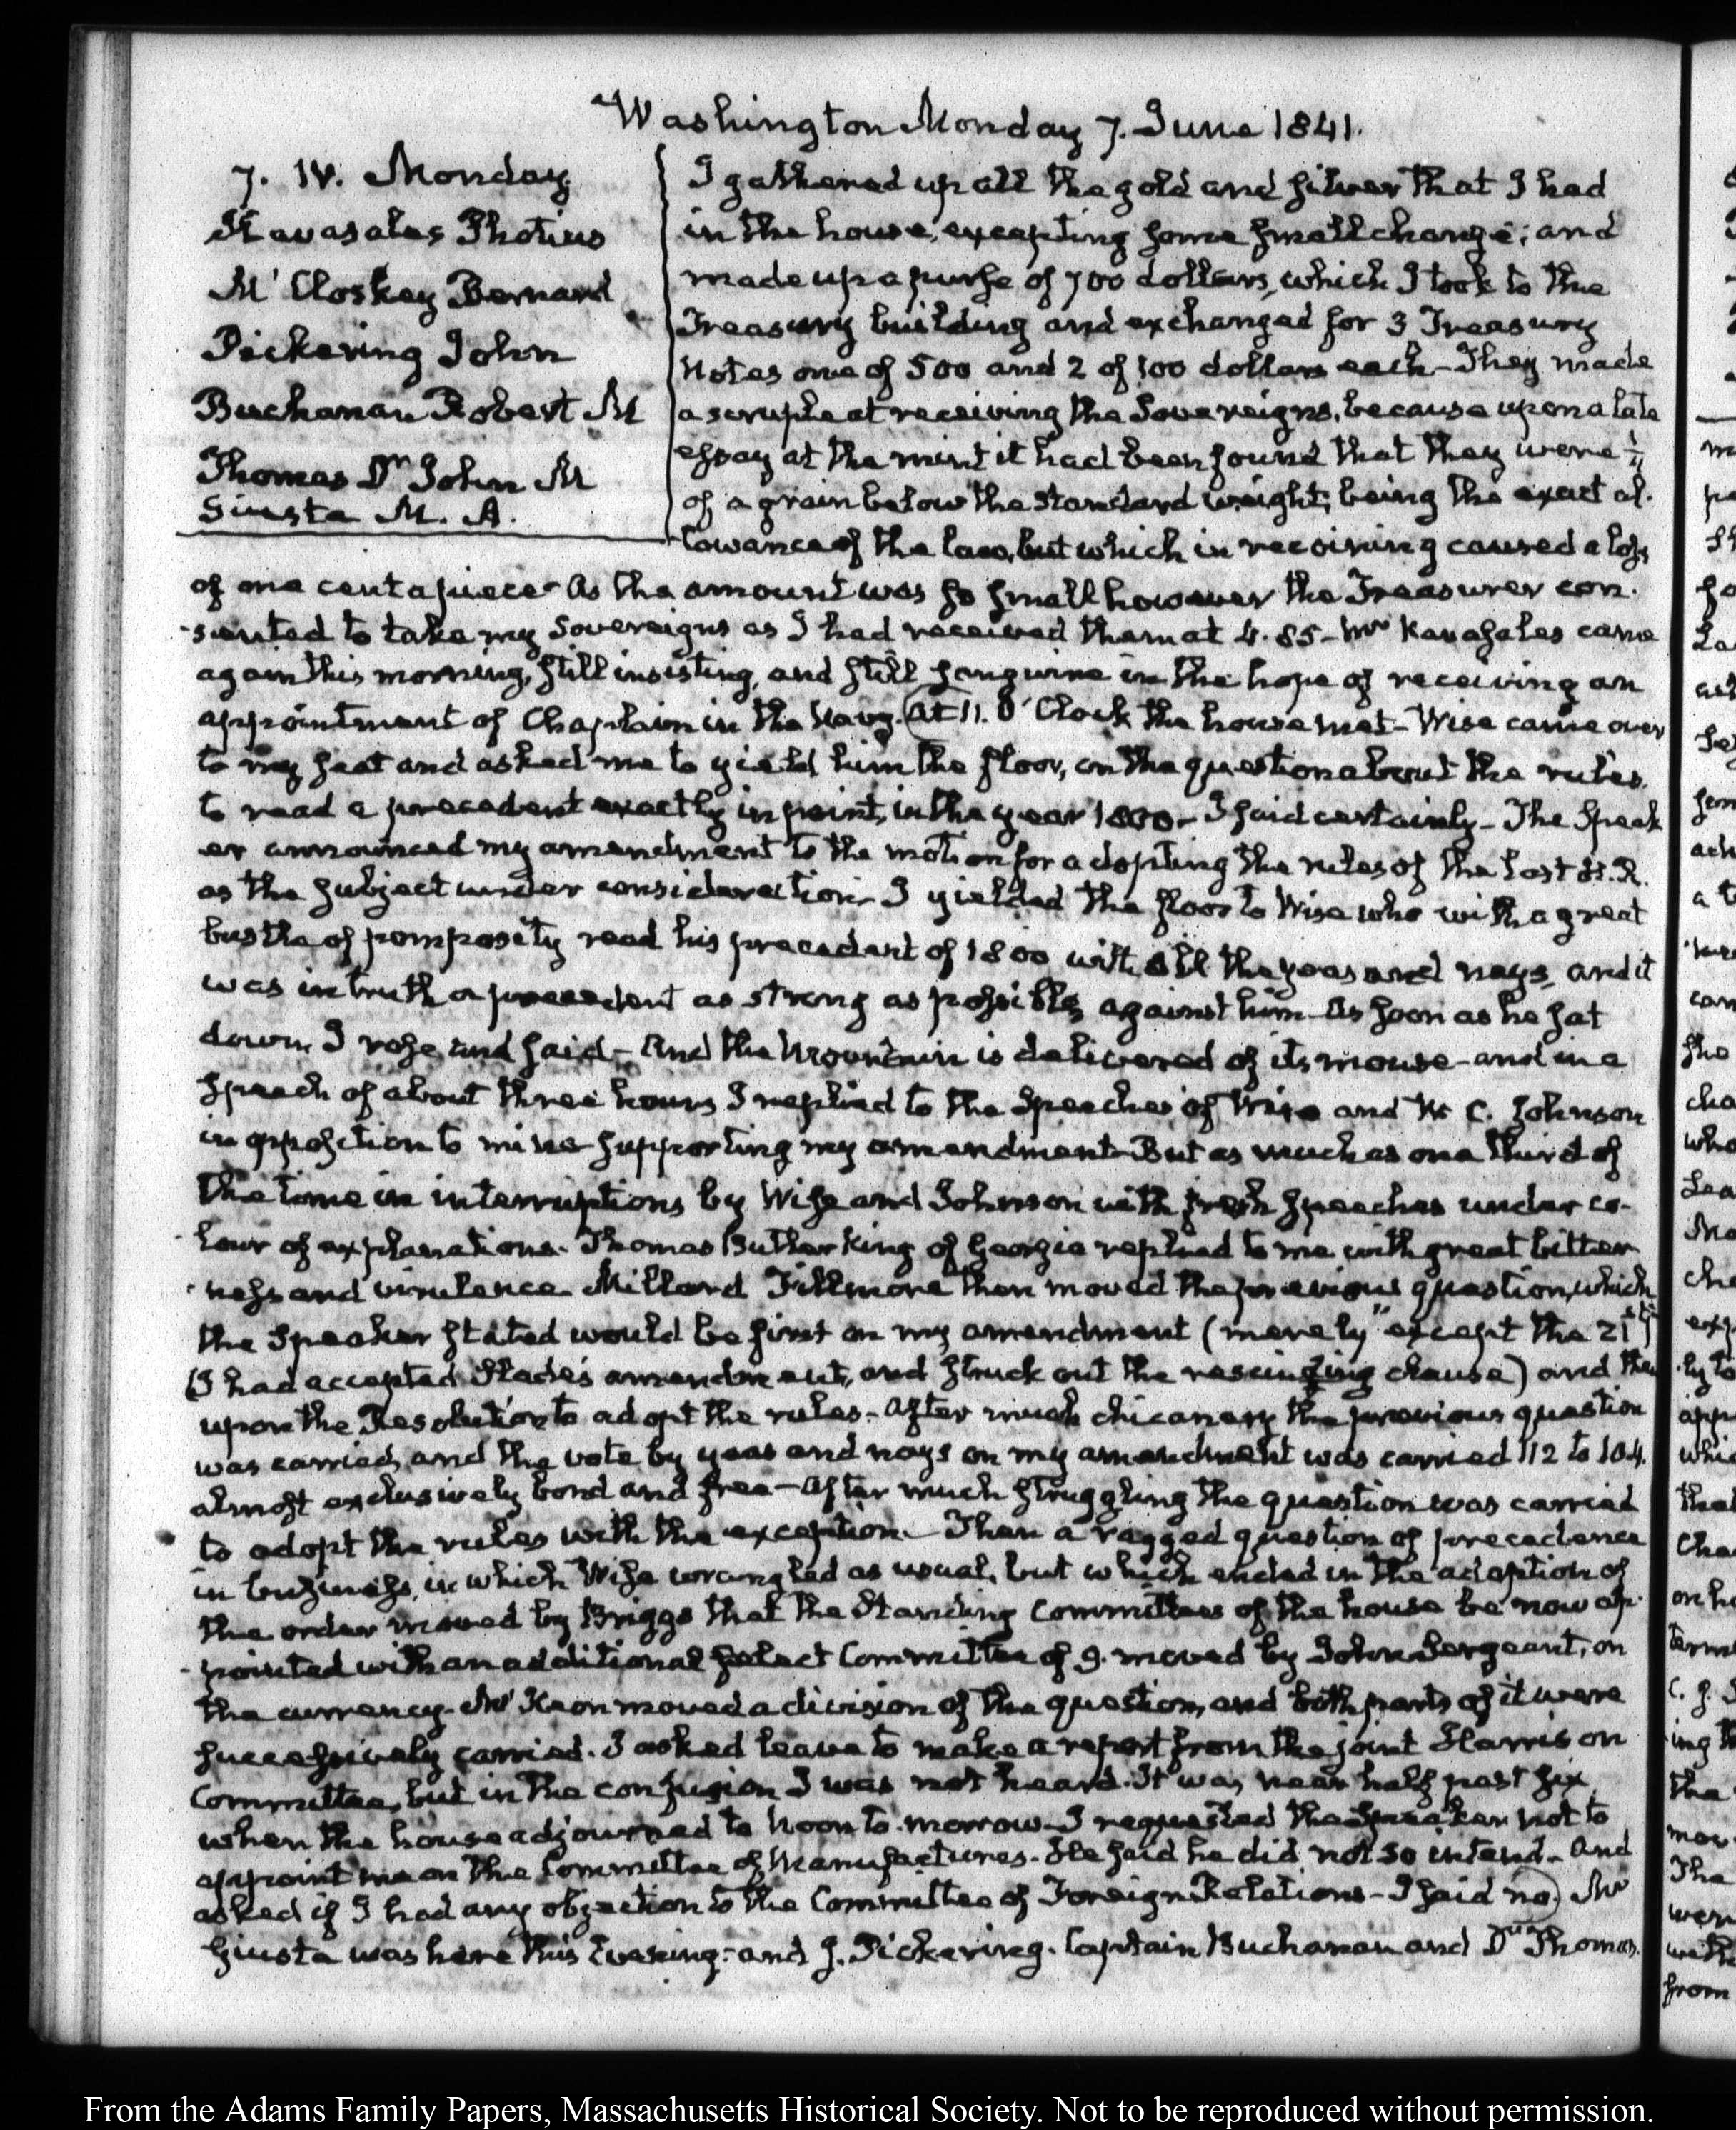 Washington Monday 7. June 1841.
7. IV. Monday
Kavasales Photius
Mc Closkey Bernard
Pickering John
Buchanan Robert M
Thomas Dr John M
Giusta M. A.
I gathered up all the gold and silver that I had
in the house, excepting some small change; and
made up a purse of 700 dollars, which I took to the
Treasury building and exchanged for 3 Treasury
Notes one of 500 and 2 of 100 dollars each – They made
a scruple at receiving the Sovereigns, because upon a late
essay at the mint it had been found that they were
of a grain below the standard weight; being the exact al-
lowance of the law, but which in receiving caused a loss
of one cent apiece – As the amount was so small however the Treasurer con-
-sented to take my Sovereigns as I had received them at 4.85 – Mr Kavasales came
again this morning, still insisting, and still sanguine in the hope of receiving an
appointment of Chaplain in the Navy. At 11. O'Clock the house met – Wise came over
to my seat and asked me to yield him the floor, on the question about the rules.
to read a precedent exactly in point, in the year 1800 – I said certainly – The Speak
er announced my amendment to the motion for adopting the rules of the last H. R.
as the subject under consideration – I yielded the floor to Wise who with a great
bustle of pomposity read his precedent of 1800 with all the yeas and nays, and it
was in truth a precedent as strong as possible, against him – As soon as he sat
down, I rose and said – And the Mountain is delivered of its mouse – and in a
speech of about three hours I replied to the speeches of Wise and W. C. Johnson
in opposition to mine supporting my amendment – But as much as one third of
the time in interruptions by Wise and Johnson with fresh speeches under co-
-lour of explanations. Thomas Butler King of Georgia replied to me with great bitter
-ness and virulence. Millard Fillmore then moved the previous question, which
the Speaker stated would be first on my amendment (merely "except the 21st")
(I had accepted Slade's amendment, and struck out the rescinding clause) and then
upon the Resolution to adopt the rules – After much chicanery the previous question
was carried, and the vote by yeas and nays on my amendment was carried 112 to 104.
almost exclusively bond and free – After much struggling the question was carried
to adopt the rules with the exception. Then a ragged question of precedence
in business, in which Wise wrangled as usual, but which ended in the adoption of
the order moved by Briggs that the Standing Committees of the house be now ap-
-pointed with an additional select Committee of 9. moved by John Sergeant, on
the currency – McKeon moved a division of the question, and both parts of it were
successively carried. I asked leave to make a report from the joint Harrison
Committee, but in the confusion I was not heard. It was near half past six
when the house adjourned to Noon to-morrow – I requested the Speaker not to
appoint me on the Committee of Manufactures – He said he did not so intend – And
asked if I had any objection to the Committee of Foreign Relations – I said no. Mr
Giusta was here this Evening: and J. Pickering. Captain Buchanan and Dr Thomas.
From the Adams Family Papers, Massachusetts Historical Society. Not to be reproduced without permission.